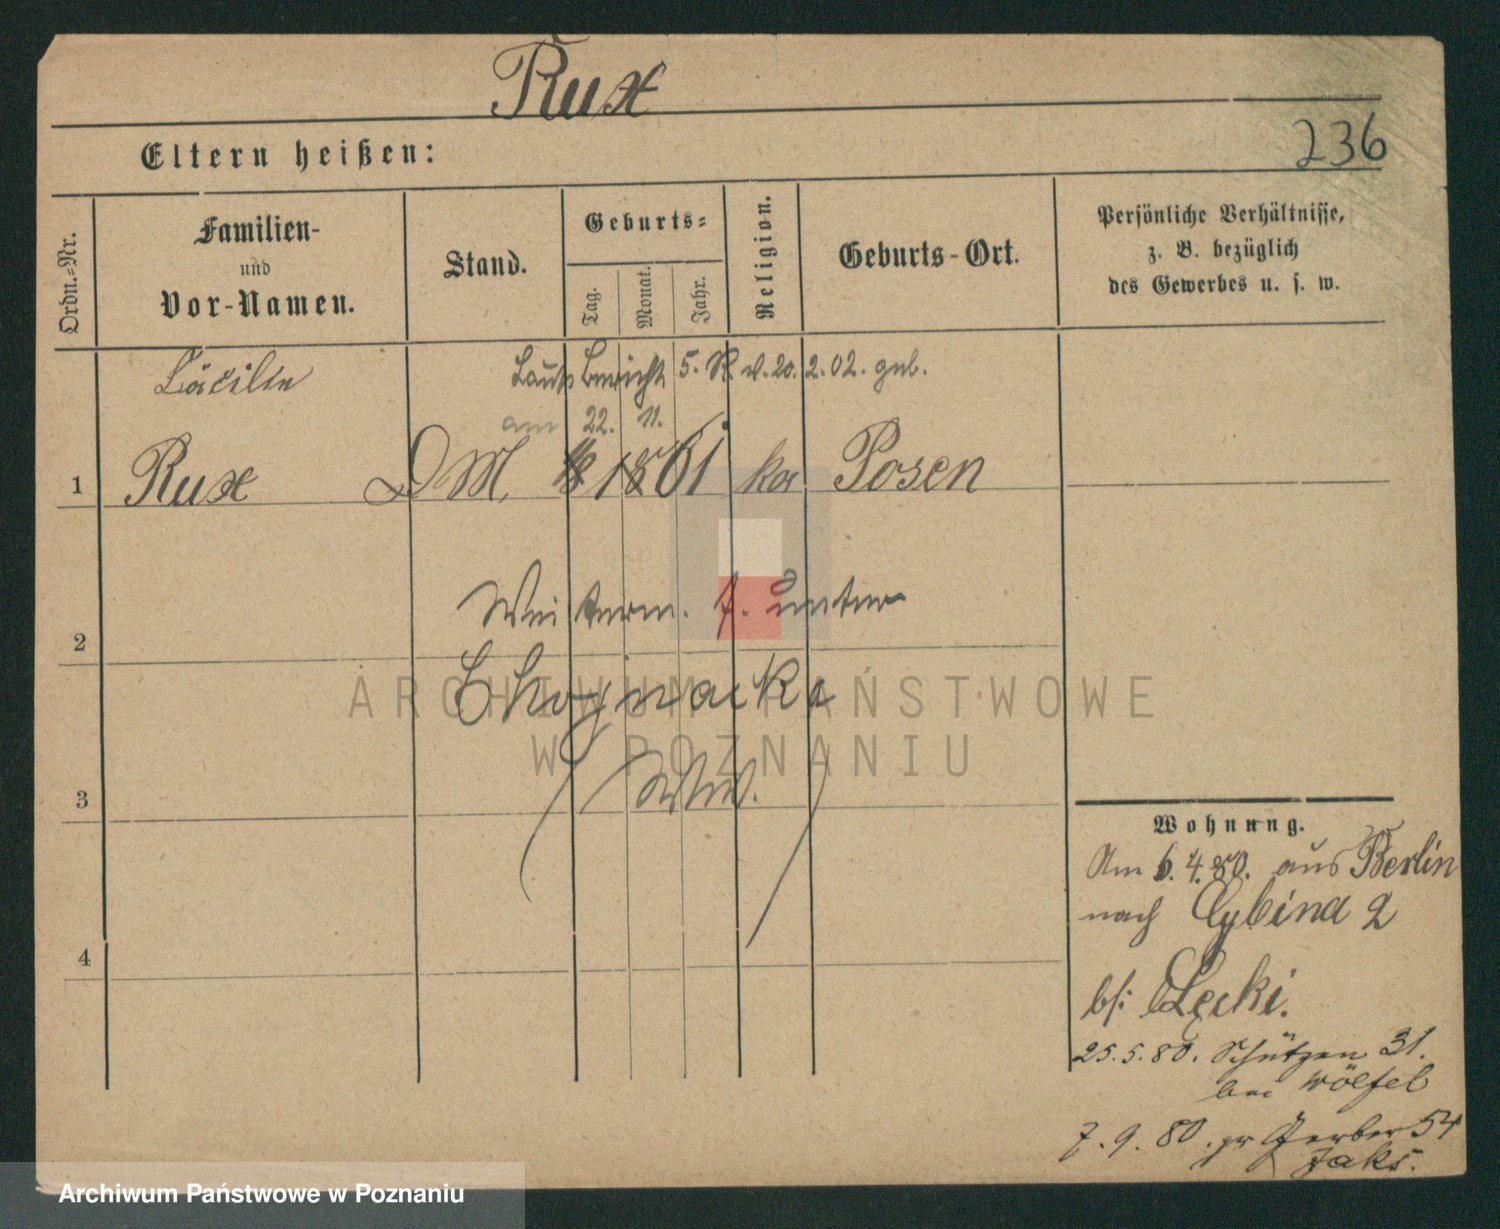 Rux
236
Eltern heißen:
Ordn.-Nr.
Familien-
und
Vor-Namen.
Stand.
Geburts-
Tag.
Monat.
Jahr.
Religion.
Geburts-Ort.
Persönliche Verhältnisse,
z. B. bezüglich
des Gewerbes u. s. w.
Cäcilie
Laut Bericht 5. R. v. 20. 2. 02. geb.
am 22. 11.
1 Rux DM. 1861 ka Posen
2
unter
Chojnacka
3
4
Wohnung.
Am 6.4.80. aus Berlin
nach Cybina 2
bei Łęcki.
25.5.80. Schützen 31.
bei Wölfel
7.9.80. gr Gerber 54
Jaks.
ARCHIWUM PAŃSTWOWE
W POZNANIU
Archiwum Państwowe w Poznaniu